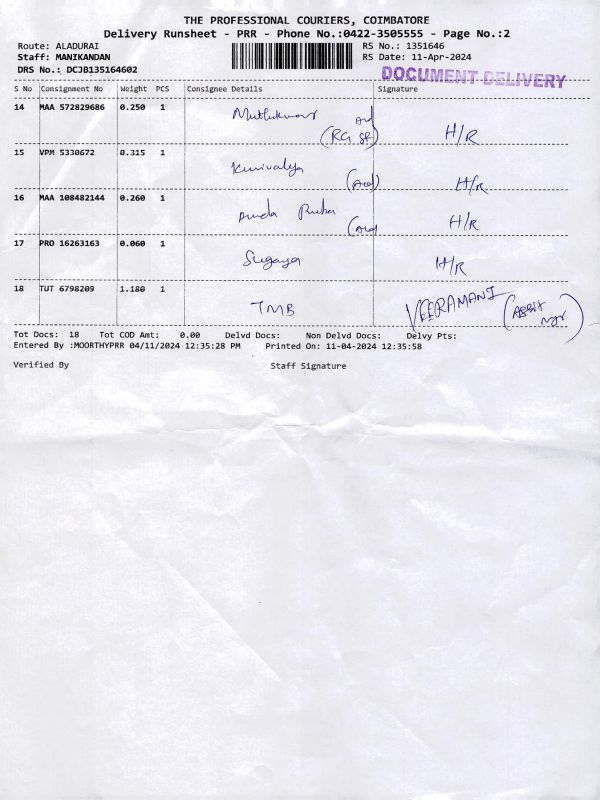 THE PROFESSIONAL COURIERS, COIMBATORE
Delivery Runsheet - PRR - Phone No.:0422-3505555 - Page No.:2
Route: ALADURAI RS No.: 1351646
Staff: MANIKANDAN RS Date: 11-Apr-2024
DRS No.: DCJB135164602 DOCUMENT DELIVERY
S No Consignment No Weight PCS Consignee Details Signature
14 MAA 572829686 0.250 1 H/R
15 VPM 5330672 0.315 1 H/R
16 MAA 108482144 0.260 1 H/R
17 PRO 16263163 0.060 1 Suganya H/R
18 TUT 6798209 1.180 1 TMB VEERAMANI
Tot Docs: 18 Tot COD Amt: 0.00 Delvd Docs: Non Delvd Docs: Delvy Pts:
Entered By :MOORTHYPRR 04/11/2024 12:35:28 PM Printed On: 11-04-2024 12:35:58
Verified By Staff Signature